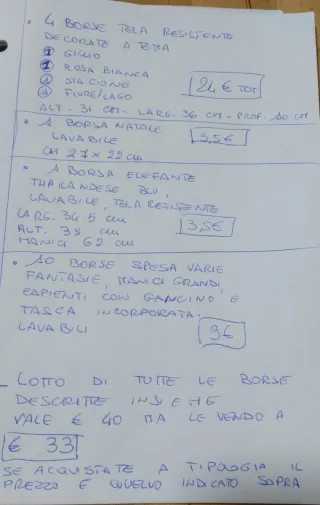 • 4 BORSE TELA RESISTENTE
DECORATE A TEMA
① GIGLIO
① ROSA BIANCA
① STAGIONE
① FIUME/LAGO
24 € TOT
ALT. 31 cm - LARG. 36 cm - PROF. 10 cm
• 1 BORSA NATALE
LAVABILE
3,5€
CM 27 x 22 cm
• 1 BORSA ELEFANTE
THAILANDESE BLU,
LAVABILE, TELA RESISTENTE
LARG. 34 5 cm
3,5€
ALT. 38 cm
MANICI 62 cm
• 10 BORSE SPESA VARIE
FANTASIE, MANICI GRANDI,
CAPIENTI CON GANCINO E
TASCA INCORPORATA.
LAVABILI
9€
- LOTTO DI TUTTE LE BORSE
DESCRITTE INSIEME
VALE € 40 MA LE VENDO A
€ 33
SE ACQUISTATE A TIPOLOGIA IL
PREZZO È QUELLO INDICATO SOPRA